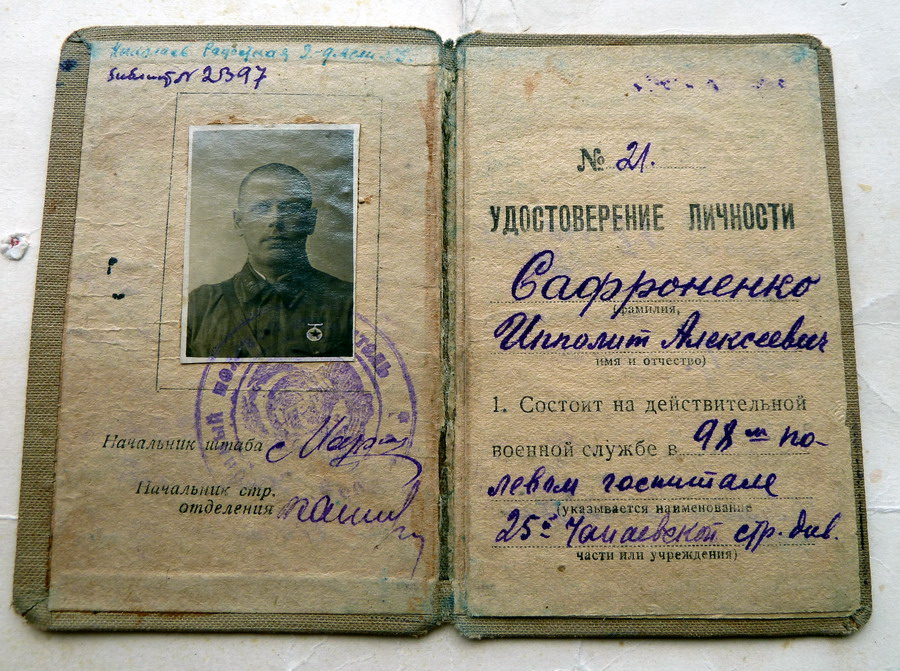 № 2397
Начальник штаба
Начальник стр.
отделения
№ 21.
УДОСТОВЕРЕНИЕ ЛИЧНОСТИ
Сафроненко
(фамилия,
Ипполит Алексеевич
имя и отчество)
1. Состоит на действительной
военной службе в 98 м по-
левом госпитале
(указывается наименование
25й Чапаевской стр. див.
части или учреждения)